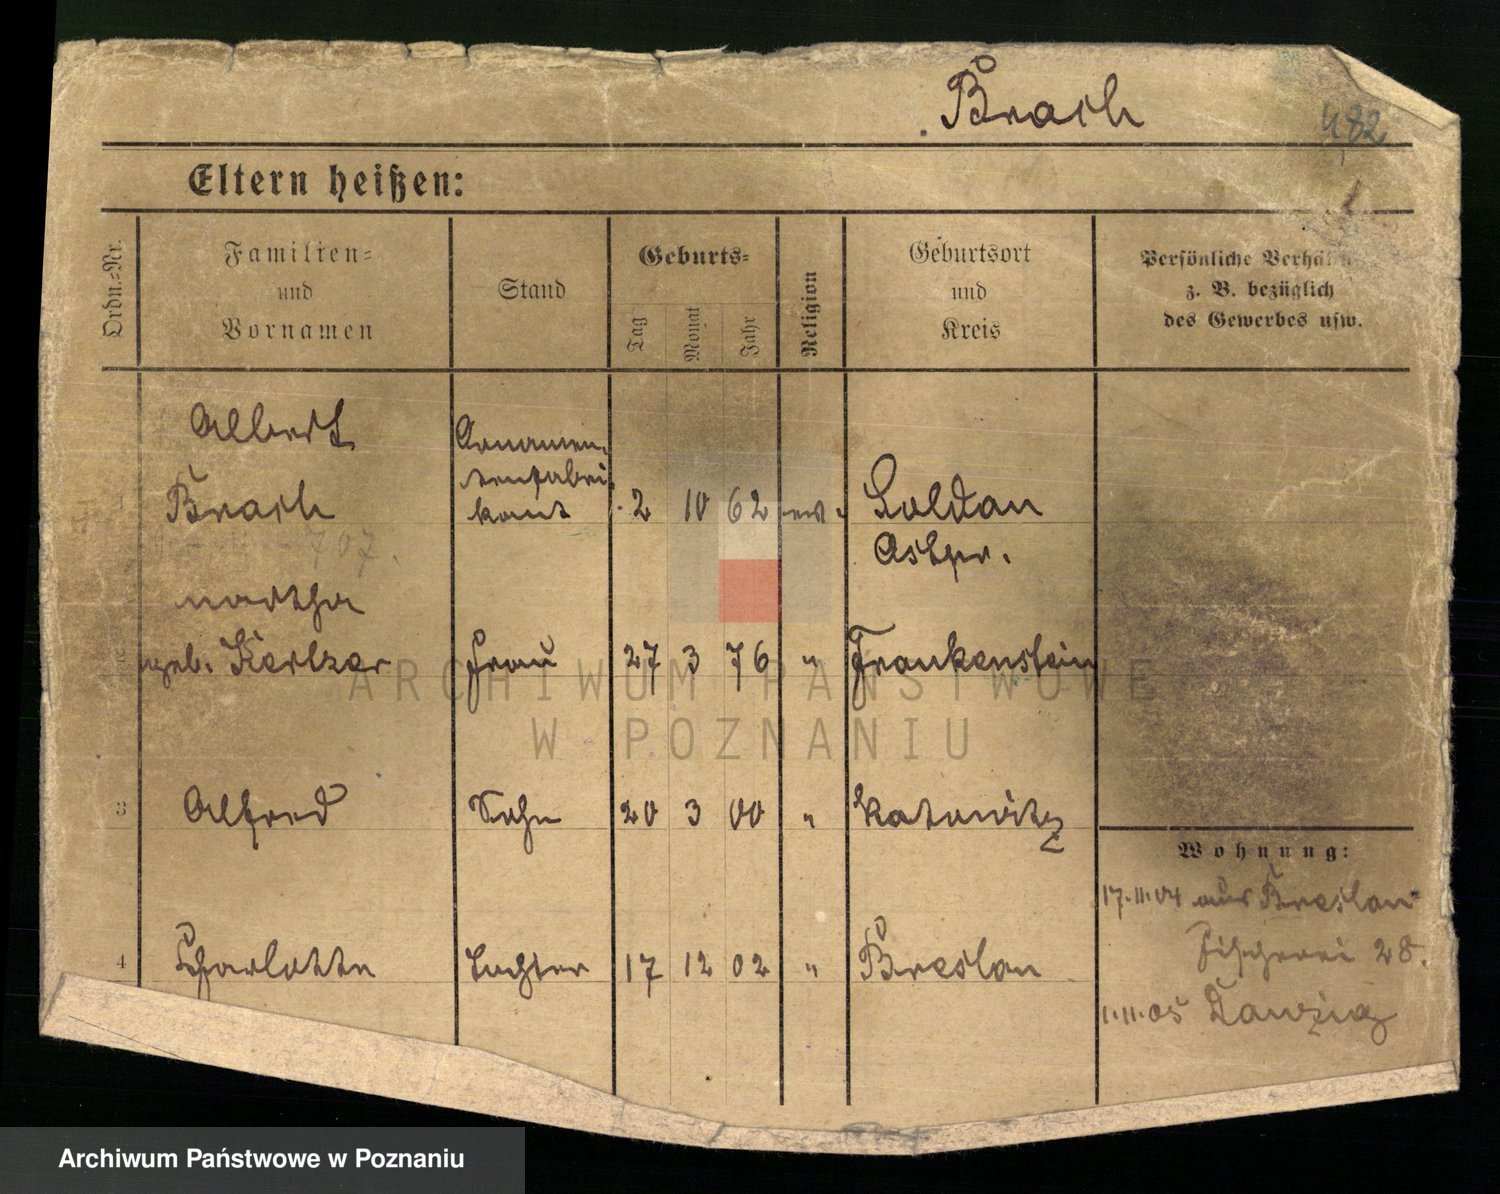 Brasch
482
1
Eltern heißen:
Ordn.=Nr.
Familien=
und
Vornamen
Stand
Geburts=
Tag
Monat
Jahr
Religion
Geburtsort
und
Kreis
Persönliche Verhäl
z. B. bezüglich
des Gewerbes usw.
Albert
Brasch
707.
Ornamen-
tenfabri
kant
2 10 62
Soldau
Ostpr.
Martha
geb.
Frau
27 3 76 "
Frankenstein
3
Alfred
Sohn
20 3 00 "
Katowitz
4
Charlotte
Tochter
17 12 02 "
Breslau
Wohnung:
17.11.04 aus Breslau
Fischerei 28.
1.11.05 Danzig
ARCHIWUM PAŃSTWOWE
W POZNANIU
Archiwum Państwowe w Poznaniu